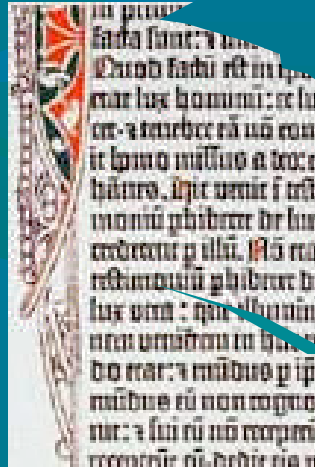 in
facta sunt: ⁊
Quod factū est in ipso
erat lux hominū: et lu
cet· ⁊ tenebre eā nō com
it homo missus a deo:
hānes. Hic venit ī testi
moniū phiberet de lum
crederent p illū. Nō era
testimoniū phiberet d
lux vera : que illumin
nem
do erat: ⁊ mūdus p ip
mūdus eū non cogno
nit: ⁊ sui eū nō recepe
receperūt eū· dedit eis